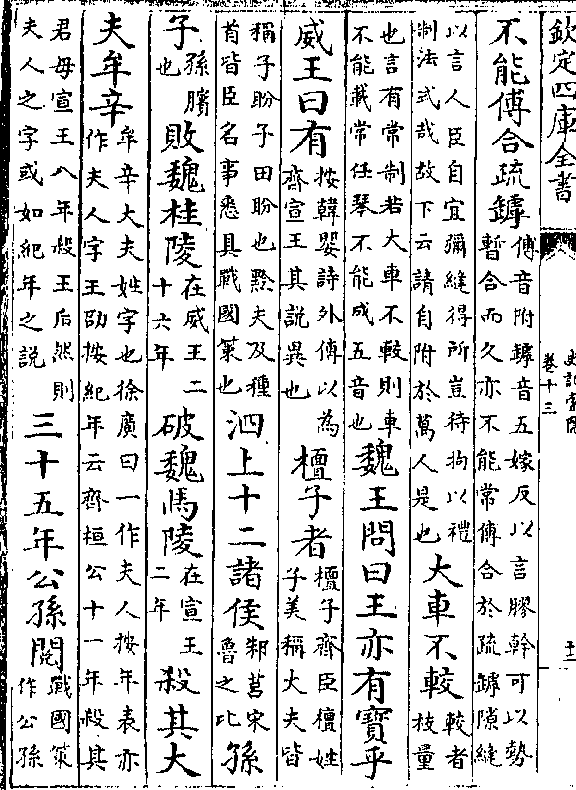 欽定四庫全書
史記索隱
卷十三
十二
不能傅合疏罅傅音附罅音五嫁反以言膠幹可以勢暫合而久亦不能常傅合於疏罅隙縫
以言人臣自宜彌縫得所豈待拘以禮制法式哉故下云請自附於萬人是也大車不較較者枝量
也言有常制若大車不較則車不能載常任琴不能成五音也魏王問曰王亦有寶乎
威王曰有按韓嬰詩外傳以為齊宣王其說異也檀子者檀子齊臣檀姓子美稱大夫皆
稱子盼子田盼也黔夫及種首皆臣名事悉具戰國策也泗上十二諸侯邾莒宋魯之比孫
子孫臏也敗魏桂陵在威王二十六年破魏馬陵在宣王二年殺其大
夫牟辛牟辛大夫姓字也徐廣曰一作夫人按年表亦作夫人字王劭按紀年云齊桓公十一年殺其
君母宣王八年殺王后然則夫人之字或如紀年之說三十五年公孫閱戰國策作公孫